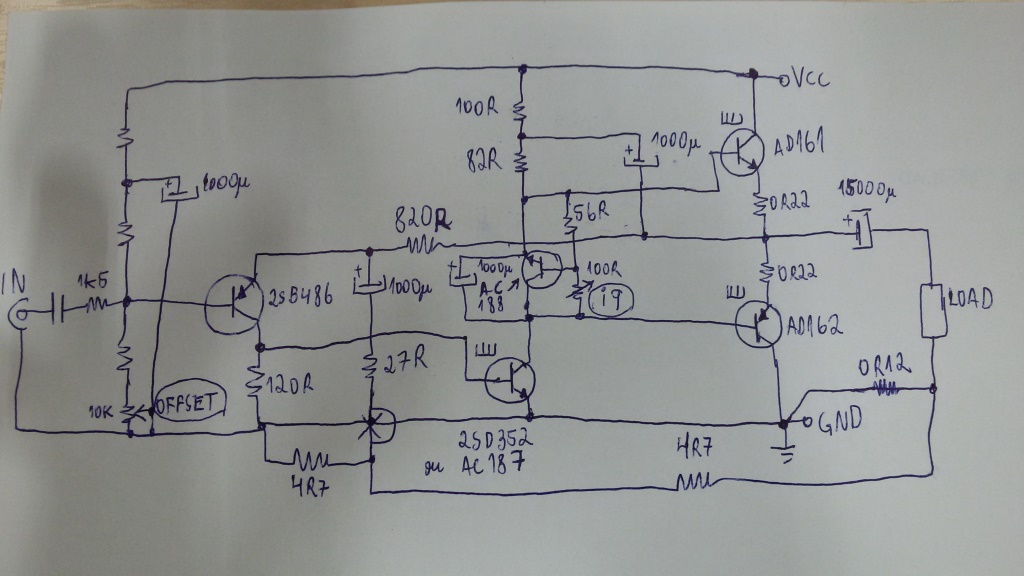 VCC
100R
82R
1000µ
AD161
1000µ
0R22
15000µ
820R
56R
IN
1k5
2SB486
1000µ
1000µ
AC
188
100R
iq
0R22
AD162
LOAD
120R
27R
0R12
10K
OFFSET
GND
2SD352
ou AC187
4R7
4R7